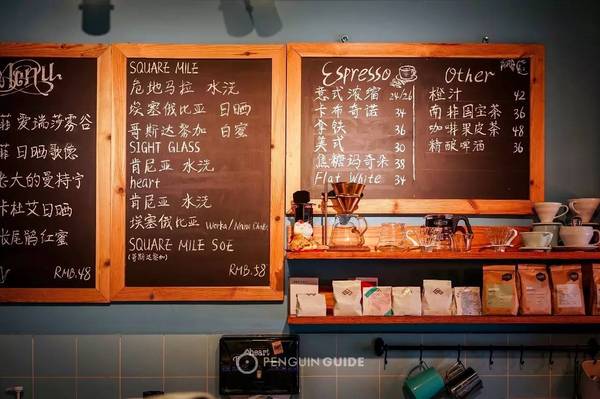 Menu
爱瑞莎雾谷
日晒歌德
老大的曼特宁
卡杜艾日晒
红蜜
RMB.48
SQUARE MILE
危地马拉 水洗
埃塞俄比亚 日晒
哥斯达黎加 白蜜
SIGHT GLASS
肯尼亚 水洗
heart
肯尼亚 水洗
埃塞俄比亚 Worka/
SQUARE MILE SOE
(哥斯达黎加)
RMB.58
Espresso
意式浓缩 24/26
卡布奇诺 34
拿铁 36
美式 30
焦糖玛奇朵 38
Flat White 34
Other
橙汁 42
南非国宝茶 36
咖啡果皮茶 48
精酿啤酒 36
heart
PENGUIN GUIDE